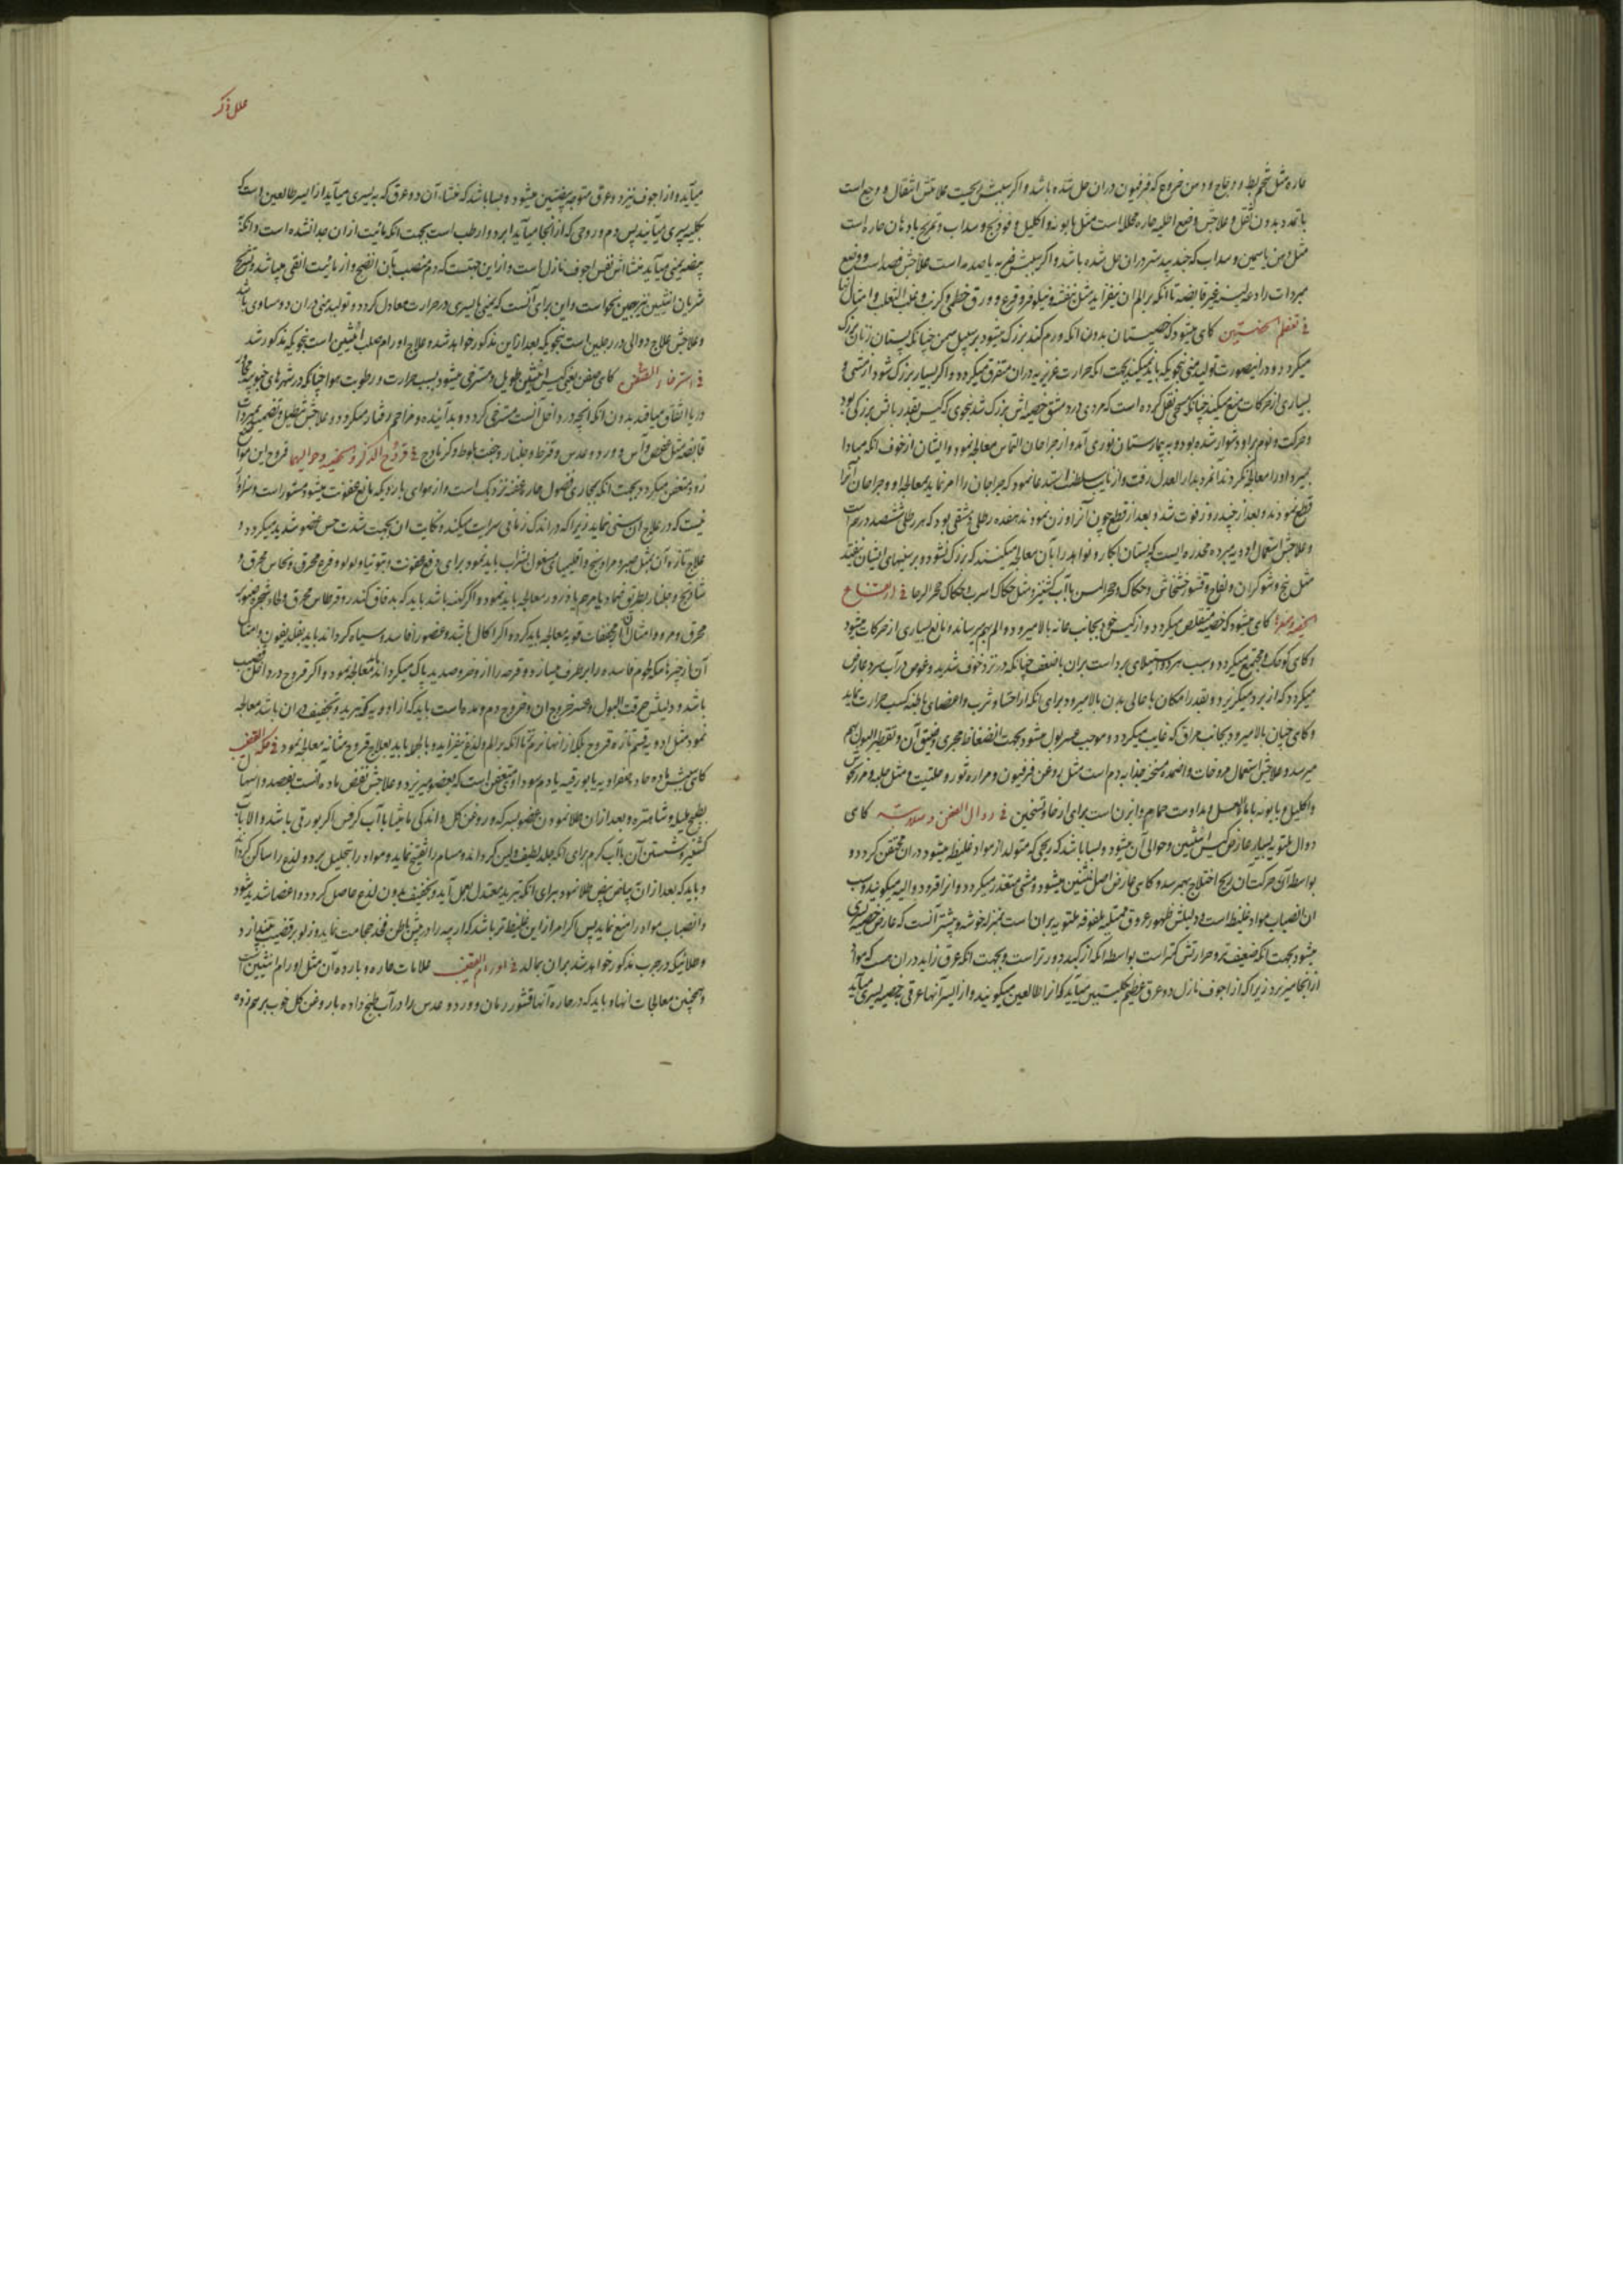 حاره مثل شحم بط و دجاج و دهن خروع که فرفیون دران حل شده باشد و اکر سببش ریحیت علامتش انتقال و وجع است
با تمدد بدون ثقل و علاجش وضع اطلیه حاره محلله است مثل بابونه و اکلیل و فودنج و سداب و تمریخ بادهان حاره است
مثل دهن یاسمین و سداب که جند بیدستر دران حل شده باشد و اکر سببش ضربه یا صدمه است علاجش فصد است و وضع
مبردات رادعه لینه غیر قابضه تا انکه بر الم ان نیفزاید مثل بنفشه و نیلوفر و قرع و ورق خطمی و کرنب و عنب الثعلب و امثال انها
في تعظم الخصیتین کاهی میشود که خصیتان بدون انکه ورم کند بزرک میشود بر سبیل سمن چنانکه پستان زنان بزرک
میکردد و درانصورت تولید منی بنحویکه باید نمیکند بجهت انکه حرارت غریزیه دران متفرق میکردد و اکر بسیار بزرک شود از مشی و
بسیاری از حرکات منع میکند چنانکه مسیحی نقل کرده است که مردی در دمشق خصیه اش بزرک شد بنحوی که کیس بقدر بالش بزرکی بود
و حرکت و نوم بر او دشوار شده بود و به بیمارستان نوری آمد و از جراحان التماس معالجه نمود و ایشان از خوف انکه مبادا
بمیرد او را معالجه نکردند انمرد بدار العدل رفت و از نایب سلطنت استدعا نمود که جراحان را امر نماید بمعالجه او و جراحان آنرا
قطع نمودند و بعد از چند روز فوت شد و بعد از قطع چون آنرا وزن نمودند هفده رطل دمشقی بود که هر رطلی ششصد درهم است
و علاجش استعمال ادویه مبرده مخدره ایست که پستان ابکار و نواهد را بآن معالجه میکنند که بزرک نشود و بر سینهای ایشان نیفتد
مثل بنج و شوکران و لفاح و قشور خشخاش و حکاک و حجر المسن با آب کشنیز و مثل حکاک اسرب و حکاک حجر الرحا في ارتفاع
الخصیه و صغرها کاهی میشود که خصیه متقلص میکردد و از کیس خود بجانب عانه بالا میرود و الم بهم میرساند و مانع بسیاری از حرکات میشود
و کاهی کوچک و مجتمع میکردد و سبب هر دو استیلای برد است بران با ضعف چنانکه در نزد خوف شدید و غوص در آب سرد عارض
میکردد که از برد میکریزد و بقدر امکان باعالی بدن بالا میرود برای انکه از احشا و ثرب و اعضای باطنه کسب حرارت نماید
و کاهی چنان بالا میرود بجانب مراق که غایب میکردد و موجب عسر بول میشود بجهت انضغاط مجری و ضیق آن و تقطیر البول بهم
میرسد و علاجش استعمال مروخات و اضمده مسخنه جذابه دم است مثل روغن فرفیون و مراره ثور و حلتیت و مثل حلبه و مرزنجوش
و اکلیل و بابونه با ماء العسل و مداومت حمام و ابزن است برای ارخا و تسخین في دوالی الصفن و صلابته کاهی
دوالی ملتویه بسیار عارض کیس انثیین و حوالی آن میشود و بسا باشد که ریحی که متولد از مواد غلیظه میشود دران محتقن کردد و
بواسطه آن حرکت ان ریح اختلاج بهم رسد و کاهی عارض اصل انثیین میشود و مشی متعذر میکردد و انرا قرو دوالیه میکویند و سبب
ان انصباب مواد غلیظ است و دلیلش ظهور عروق ممتلیه ملفوفه ملتویه بران است بمنزله خوشه و بیشتر آنست که عارض خصیه یسری
میشود بجهت انکه ضعیف تر و حرارتش کمتر است بواسطه انکه از کبد دور تر است و بجهت انکه عرق زاید دران هست که مواد
ازانجا میریزد زیرا که از اجوف نازل دو عرق عظیم بکلیتین میآید که آنرا طالعین میکویند و از ایسر آنها عرقی بخصیه یسری میآید
علل ذکر
میآید و از اجوف نیز دو عرق متوجه بیضتین میشود و بسا باشد که منشاء آن دو عرق که به یسری میآید از ایسر طالعین است که
بکلیه یسری میآیند پس دم و روحی که از انجا میآید ابرد و ارطب است بجهت انکه مائیت ازان جدا نشده است و انکه
ببیضه یمنی میآید منشا اش نفس اجوف نازل است و ازاین جهتست که دم منصب بآن انضج و از مائیت انقی میباشد و منسج
شریان انثیین نیز بهمین نحو است و این برای آنست که یمنی با یسری در حرارت معادل کردد و تولید منی دران دو مساوی باشد
و علاجش علاج دوالی در رجلین است بنحویکه بعد ازاین مذکور خواهد شد و علاج اورام صلب انثیین است بنحویکه مذکور شد
في استرخاء الصفن کاهی صفن یعنی کیس انثیین طویل و مسترخی میشود بسبب حرارت و رطوبت هوا چنانکه در شهرهای جنوبیه مجاور
دریا اتفاق میافتد بدون انکه انچه در داخل آنست مسترخی کردد و بد آینده و مزاحم رفتار میکردد و علاجش تنطیل و تضمید بمبردات
قابضه مثل عفص و آس و ورد و عدس و قرظ و جلنار و جفت بلوط و کزمازج في قروح الذکر و الخصیه و حوالیهما قروح این مواضع
زود متعفن میکردد بجهت انکه بمجاری فضول حاره عفنه نزدیک است و از هوای بارد که مانع عفونت میشود مستور است و سزاوار
نیست که در علاج ان سستی نماید زیرا که در اندک زمانی سرایت میکند و نکایت ان بجهت شدت حس عضو شدید میکردد و
علاج تازه آن بمثل صبر و مرداسنج و اقلیمیای مغسول بشراب باید نمود برای دفع عفونت و بتوتیا و لولو و قرع محرق و نحاس محرق و
شادنج و جلنار بطریق ضماد یا مرهم یا ذرور معالجه باید نمود و اکر کهنه باشد باید که بدقاق کندر و قرطاس محرق و لحاء شجر صنوبر
محرق و مر و امثال آن از مجففات قویه معالجه باید کرد و اکر اکال باشد و عضو را فاسد و سیاه کرداند باید بقلدیفون و امثال
آن از چیزها که لحوم فاسده را بر طرف میسازد و قرحه را از وضر و صدید پاک میکرداند معالجه نمود و اکر قروح در داخل قضیب
باشد و دلیلش حرقت البول و عسر خروج ان و خروج دم و مده است باید که از ادویه که تبرید و تجفیف دران باشد معالجه
نمود مثل ادویه قسم تازه قروح بلکه از انها نرم تر تا انکه بر الم و لذع نیفزاید و بالجمله باید بعلاج قروح مثانه معالجه نمود في حکة القضیب
کاهی سببش ماده حاد صفراویه یا بورقیه یا دم سوداوی متعفن است که بعضو میریزد و علاجش نقض ماده آنست بفصد و اسهال
بطبیخ هلیله و شاهتره و بعد ازان طلا نمودن عضو بسرکه و روغن کل و اندکی مامیثا با آب کرفس اکر بورقی باشد و الا با آب
کشنیز و شستن آن با آب کرم برای انکه جلد لطیف و لین کرداند و مسام را تفتیح نماید و مواد را بتحلیل برد و لذع را ساکن کرداند
و باید که بعد ازان بیاض بیض طلا نمود برای انکه تبرید معتدل بعمل آید و تجفیف بدون لذع حاصل کردد و اعضا شدید شود
و انصباب مواد را منع نماید پس اکر امر ازاین غلیظ تر باشد که ارچه را در پیش باطن فخذ حجامت نماید و زلو بر قضیب بیندازد
و طلائیکه در جرب مذکور خواهد شد بران بمالد في اورام القضیب علامات حاره و بارده آن مثل اورام انثیین است
و همچنین معالجات انها و باید که در حاره آنها قشور رمان و ورد و عدس را در آب طبخ داده با روغن کل خوب بر هم زده